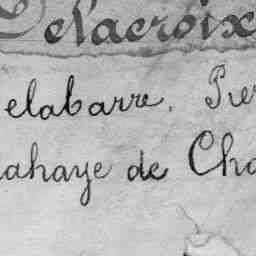 Delacroix
elabarre. Pier
ahaye de Cha